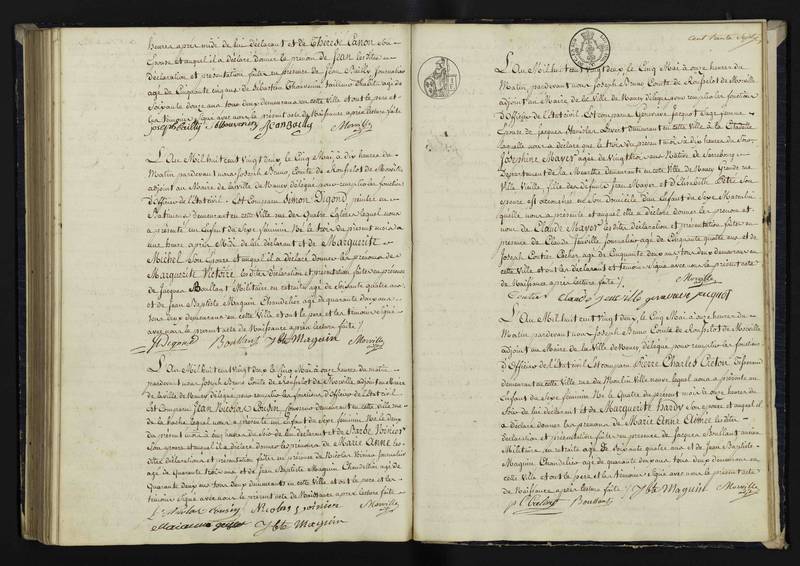 heures après midi de lui déclarant et de Thérèse Canon son
Epouse et auquel il a déclaré donner le prénom de Jean les dites
déclaration et présentation faites en présence de Jean Bailly Journalier
agé de Cinquante cinq ans de Sébastien
Soixante douze ans tous deux demeurans en cette Ville et ont le pere et
les témoins signé avec nous le présent acte de Naissance après lecture faite
Joseph Bailly Jean Bailly Morville
L'An Mil huit cent vingt deux, le Cinq Mai à dix heures du
Matin pardevant nous Joseph Bruno, Comte de Rouselot de Morville
adjoint au Maire de la Ville de Nancy délégué pour remplir les fonctions
d'Officier de l'Etat civil. Est Comparu Simon Digond peintre en
Batimens demeurant en cette Ville rue des Quatre Eglises lequel nous
a présenté un Enfant du Sexe féminin Né le trois du présent mois à
une heure après Midi de lui déclarant et de Marguerite
Michel Son Epouse et auquel il a déclaré donner les prénoms de
Marguerite Victoire les dites déclaration et présentation faites en présence
de Jacques Boullant Militaire en retraite agé de soixante quatre ans
et de Jean Baptiste Maguin Chandelier agé de quarante deux ans
tous deux demeurans en cette Ville et ont le pere et les témoins signé
avec nous le présent acte de Naissance après lecture faite /
Digond Boullant J bte Maguin Morville
L'An Mil huit cent vingt deux le Cinq Mai à onze heures du matin
pardevant nous Joseph Bruno Comte de Rouselot de Morville adjoint au Maire
de la Ville de Nancy délégué pour remplir les fonctions d'Officier de l'Etat civil
Est Comparu Jean Nicolas Cousin demeurant en cette Ville rue
de la Hache lequel nous a présenté un Enfant du Sexe féminin Né le deux
du présent mois à heures du Soir de lui déclarant et de Barbe Poirier
Son Epouse et auquel il a déclaré donner les prénoms de Marie Anne les
dites déclaration et présentation faites en présence de Nicolas Poirier Journalier
agé de Quarante trois ans et de Jean Baptiste Maguin Chandelier agé de
Quarante deux ans tous deux demeurans en cette Ville et ont le pere et les
témoins signé avec nous le présent acte de Naissance après lecture faite
Nicolas Cousin Nicolas poiriere Morville
J bte Maguin
L'An Mil huit cent vingt deux, le Cinq Mai à onze heures du
Matin, pardevant nous Joseph Bruno Comte de Rouselot de Morville
adjoint au Maire de la Ville de Nancy délégué pour remplir les fonctions
d'Officier de l'Etat civil Est comparue Genevieve Jacquot Sage femme
Epouse de Jacques demeurant en cette Ville à la Citadelle
laquelle nous a déclaré que le trois du présent mois à dix heures du Soir
Josephine Mayer agée de Vingt trois ans Native de Sarrebourg
Département de la Meurthe demeurante en cette Ville de Nancy Grande rue
Ville Vieille, fille des défunts Jean Mayer et d'Elisabeth Son
epouse est accouchée en Son domicile d'un Enfant du Sexe Masculin
qu'elle nous a présenté et auquel elle a déclaré donner les prénom et
nom de Claude Mayer les dites déclaration et présentation faites en
présence de Claude Jeuville Journalier agé de Cinquante quatre ans et de
Joseph Contre Cocher agé de Cinquante deux ans tous deux demeurans en
cette Ville et ont les déclarant et témoins signé avec nous le présent acte
de Naissance après lecture faite /. Morville
Contre Claude Jeuville genevieve jacquot
L'An Mil huit cent vingt deux, le Cinq Mai à onze heures du
Matin pardevant nous Joseph Bruno Comte de Rouselot de Morville
adjoint au Maire de la Ville de Nancy, délégué pour remplir les fonctions
d'Officier de l'Etat civil Est comparu Pierre Charles Creton Tisserand
demeurant en cette Ville rue du Moulin Ville neuve lequel nous a présenté un
Enfant du Sexe féminin Né le Quatre du présent mois à onze heures du
Soir de lui déclarant et de Marguerite Hardy Son épouse et auquel il
a déclaré donner les prénoms de Marie Anne Aimée les dites
déclaration et présentation faites en présence de Jacques Boullant ancien
Militaire en retraite agé de Soixante quatre ans et de Jean Baptiste
Maguin Chandelier agé de quarante deux ans tous deux demeurans en
cette Ville et ont le pere et les témoins Signé avec nous le présent acte
de Naissance après lecture faite / J bte Maguin Morville
p C Creton Boullant